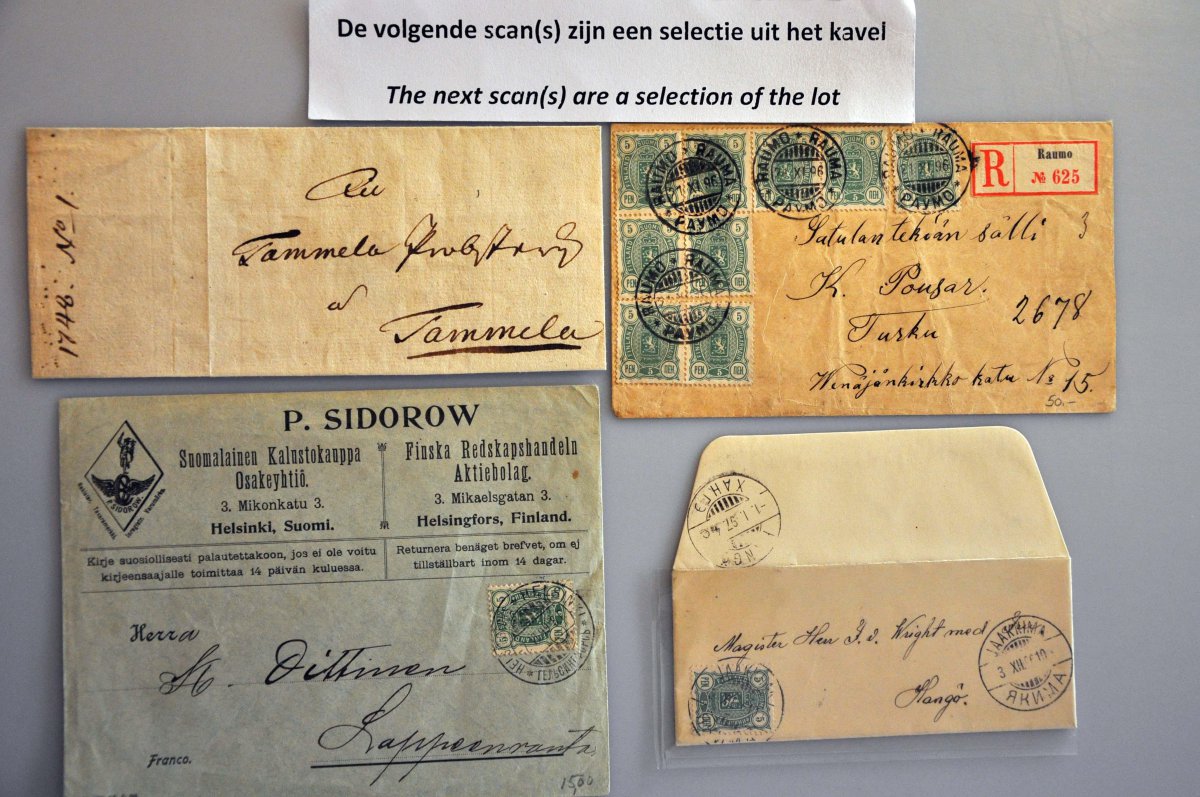 De volgende scan(s) zijn een selectie uit het kavel
The next scan(s) are a selection of the lot
1748. No 1.
Tammela
Tammela
RAUMO RAUMA
XI 96
РАУМО
RAUMO RAUMA
7 XI 96
РАУМО
RAUMA
XI 96
РАУМО
RAUMO RAUMA
РАУМО
5 5
PEN ПЕН
R
Raumo
№ 625
sälli 3
K. Pousar.
2678
Turku
Wenäjänkirkko katu No 15.
50.-
P. SIDOROW
P. SIDOROW
Suomalainen Kalustokauppa
Osakeyhtiö.
3. Mikonkatu 3.
Helsinki, Suomi.
Finska Redskapshandeln
Aktiebolag.
3. Mikaelsgatan 3.
Helsingfors, Finland.
Kirje suosiollisesti palautettakoon, jos ei ole voitu
kirjeensaajalle toimittaa 14 päivän kuluessa.
Returnera benäget brefvet, om ej
tillställbart inom 14 dagar.
Herra
Dittmen
Lappeenranta
Franco.
15,00
HELSINKI
ХАНГЭ
Magister Herr J. v. Wright med
Hangö.
JAAKKIMA
3 XII 10
ЯКИМА
5 5